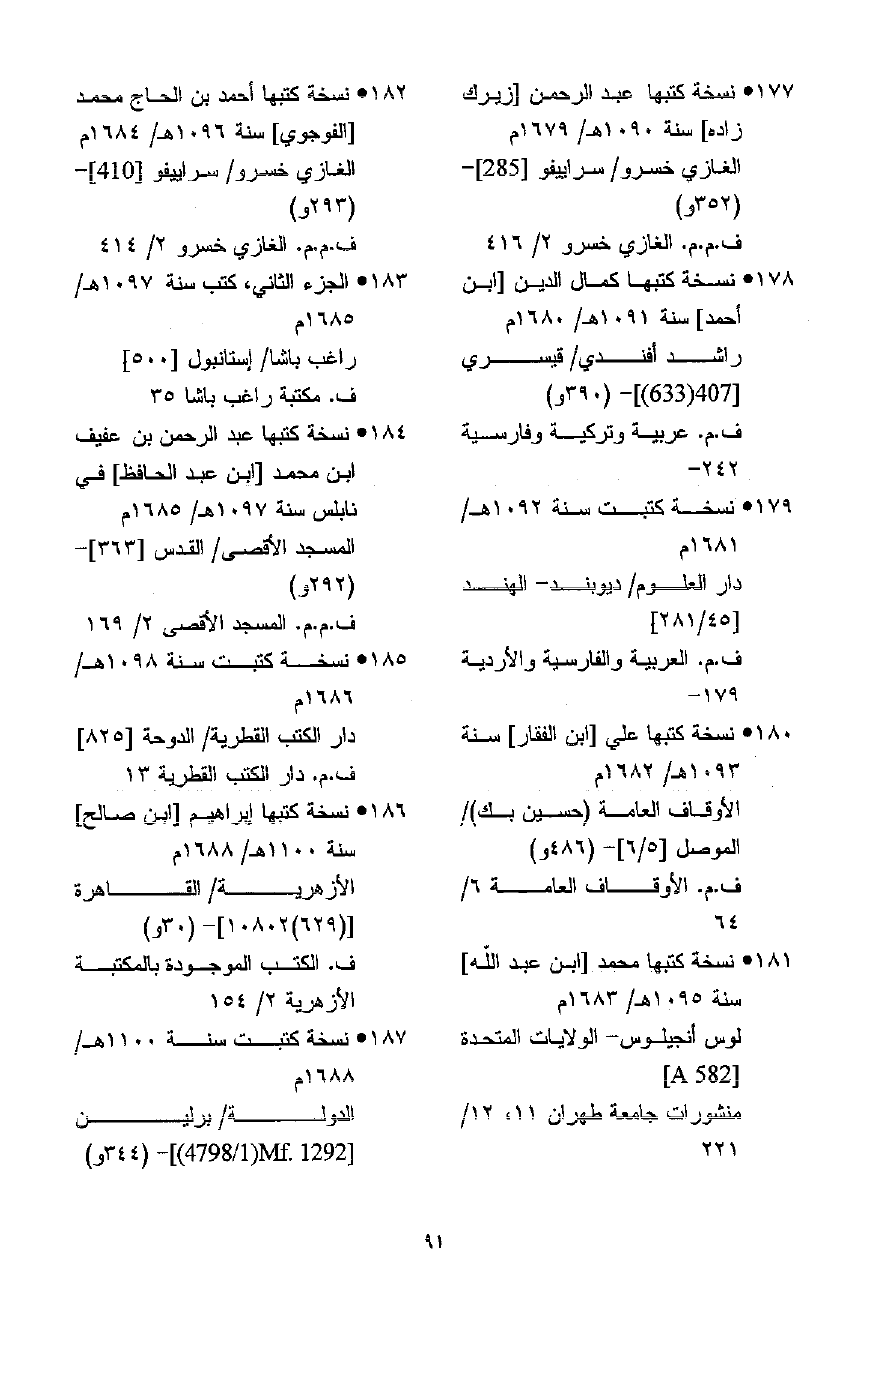 ١٧٧● نسخة كتبها عبد الرحمن [زيرك
زاده] سنة ١٠٩٠هـ/ ١٦٧٩م
الغازي خسرو/ سراييفو [285]–
(٣٥٢و)
ف.م.م. الغازي خسرو ٢/ ٤١٦
١٧٨● نسخة كتبها كمال الدين [ابن
أحمد] سنة ١٠٩١هـ/ ١٦٨٠م
راشد أفندي/ قيسري
[407(633)]– (٣٩٠و)
ف.م. عربية وتركية وفارسية
٢٤٢–
١٧٩● نسخة كتبت سنة ١٠٩٢هـ/
١٦٨١م
دار العلوم/ ديوبند– الهند
[٢٨١/٤٥]
ف.م. العربية والفارسية والأردية
١٧٩–
١٨٠● نسخة كتبها علي [ابن الفقار] سنة
١٠٩٣هـ/ ١٦٨٢م
الأوقاف العامة (حسين بك)/
الموصل [٦/٥]– (٤٨٦و)
ف.م. الأوقاف العامة ٦/
٦٤
١٨١● نسخة كتبها محمد [ابن عبد اللّه]
سنة ١٠٩٥هـ/ ١٦٨٣م
لوس أنجيلوس– الولايات المتحدة
[A 582]
منشورات جامعة طهران ١١، ١٢/
٢٢١
١٨٢● نسخة كتبها أحمد بن الحاج محمد
[الفوجوي] سنة ١٠٩٦هـ/ ١٦٨٤م
الغازي خسرو/ سراييفو [410]–
(٢٩٣و)
ف.م.م. الغازي خسرو ٢/ ٤١٤
١٨٣● الجزء الثاني، كتب سنة ١٠٩٧هـ/
١٦٨٥م
راغب باشا/ إستانبول [٥٠٠]
ف. مكتبة راغب باشا ٣٥
١٨٤● نسخة كتبها عبد الرحمن بن عفيف
ابن محمد [ابن عبد الحافظ] في
نابلس سنة ١٠٩٧هـ/ ١٦٨٥م
المسجد الأقصى/ القدس [٣٦٣]–
(٢٩٢و)
ف.م.م. المسجد الأقصى ٢/ ١٦٩
١٨٥● نسخة كتبت سنة ١٠٩٨هـ/
١٦٨٦م
دار الكتب القطرية/ الدوحة [٨٢٥]
ف.م. دار الكتب القطرية ١٣
١٨٦● نسخة كتبها إبراهيم [ابن صالح]
سنة ١١٠٠هـ/ ١٦٨٨م
الأزهرية/ القاهرة
[(٦٢٩)١٠٨٠٢]– (٣٠و)
ف. الكتب الموجودة بالمكتبة
الأزهرية ٢/ ١٥٤
١٨٧● نسخة كتبت سنة ١١٠٠هـ/
١٦٨٨م
الدولة/ برلين
[(4798/1)Mf. 1292]– (٣٤٤و)
٩١